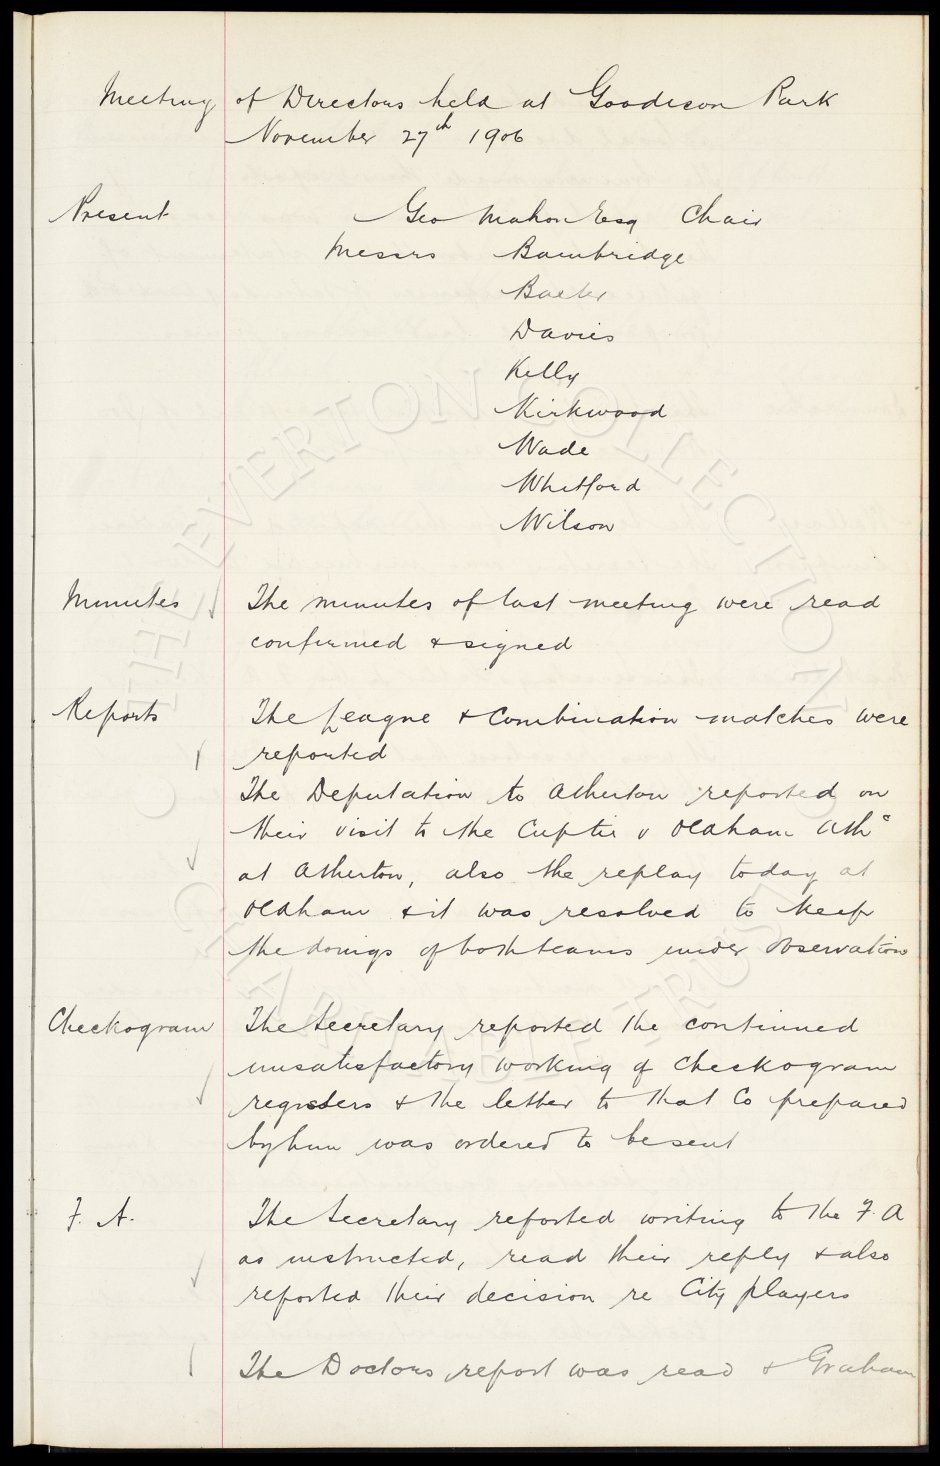 Meeting of Directors held at Goodison Park
November 27th 1906
Present Geo Mahon Esq Chair
Messrs Bainbridge
Baxter
Davies
Kelly
Kirkwood
Wade
Whitford
Wilson
Minutes The minutes of last meeting were read
confirmed & signed
Reports The League & Combination matches were
reported
The Deputation to Atherton reported on
their visit to the Cuptie v Oldham Athc
at Atherton, also the replay today at
Oldham & it was resolved to keep
the doings of both teams under observation
Checkogram The Secretary reported the continued
unsatisfactory working of Checkogram
registers & the letter to that Co prepared
by him was ordered to be sent
F. A. The Secretary reported writing to the F.A
as instructed, read their reply & also
reported their decision re City players
The Doctors report was read & Graham
© THE EVERTON COLLECTION
CHARITABLE TRUST